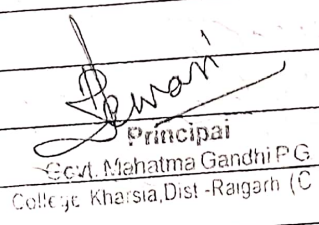 Principal
Govt. Mahatma Gandhi P G
College Kharsia, Dist -Raigarh (C